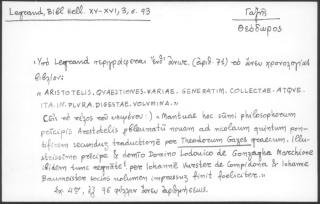 Legrand, Bibl Hell. XV-XVI, 3, σ. 93
Γαζῆς
Θεόδωρος
Ὑπό Legrand περιγράφεται ἔνθ' ἄνωτ. (ἀριθ. 76) τό ἄνευ χρονολογίας
βιβλίον:
« ARISTOTELIS. QVAESTIONES. VARIAE. GENERATIM. COLLECTAE. ATQVE.
ITA. IN. PLVRA. DIGESTAE. VOLVMINA. »
(εἰς τό τέλος τοῦ κειμένου:) « Mantuae hoc sūmi philosophorum
prīcipis Aristotelis pbleumatū nouam ad nicolaum quintum pon-
tificem secundus traductionē per Theodorum Gazes graecum, Illu-
strissimo prīcipe & domīo Domino Lodouico de Gonzagha Marchione
ibidem tunc regnāte, per Iohannē Vurster de Campidona & Iohannē
Baumeister socios volumen impressuz finit foeliciter. »
Εἰς 4ᾱ, ἐξ 96 φύλλων ἄνευ ἀριθμήσεως.